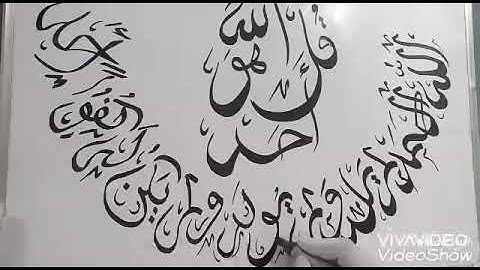 قل هو الله
أحد
الله الصمد لم يلد ولم يولد ولم يكن له كفوا أحد
VIVAVIDEO
VideoShow